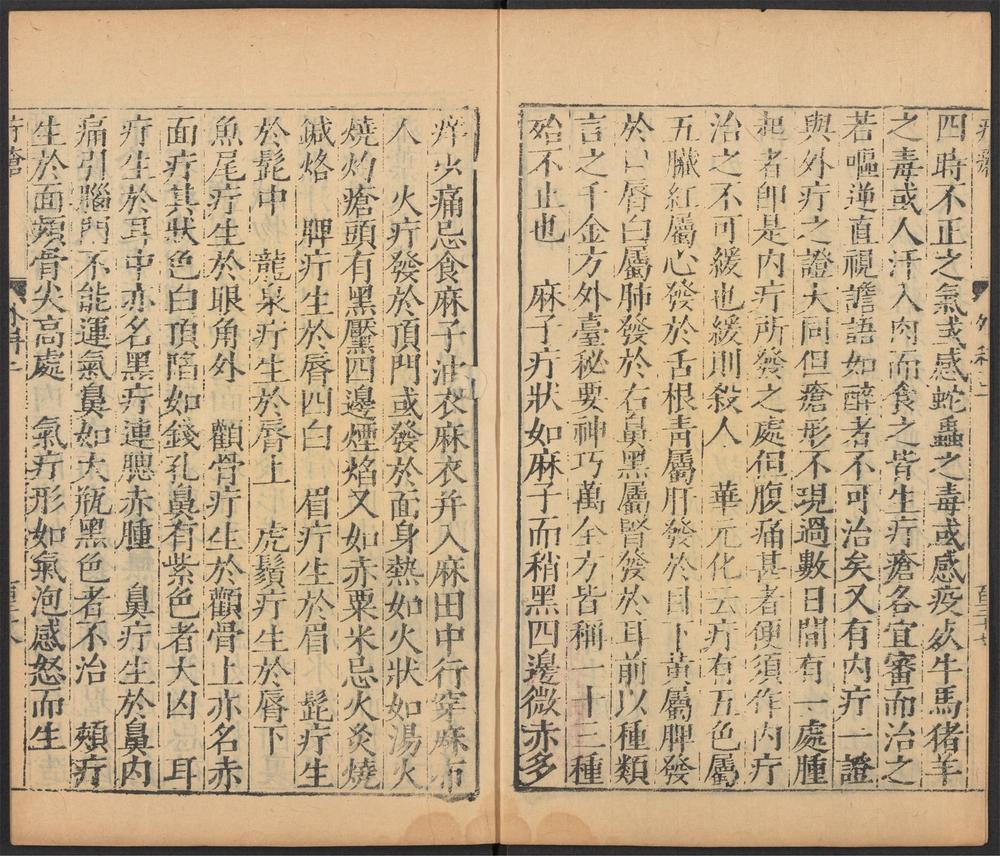 四時不正之氣或感蛇蟲之毒或感疫死牛馬猪羊
之毒或人汗入肉而食之皆生疔瘡各宜審而治之
若嘔逆直視譫語如醉者不可治矣又有內疔一證
與外疔之證大同但瘡形不現過數日間有一處腫
起者卽是內疔所發之處但腹痛甚者便須作內疔
治之不可緩也緩則殺人　華元化云疔有五色屬
五臟紅屬心發於舌根靑屬肝發於目下黃屬脾發
於口唇白屬肺發於右鼻黑屬腎發於耳前以種類
言之千金方外臺秘要神巧萬全方皆稱一十三種
殆不止也　麻子疔狀如麻子而稍黑四邊微赤多
痒少痛忌食麻子油衣麻衣并入麻田中行穿麻布
人　火疔發於頂門或發於面身熱如火狀如湯火
燒灼瘡頭有黑黶四邊煙焰又如赤粟米忌火灸燒
鍼烙　脾疔生於唇四白　眉疔生於眉　髭疔生
於髭中　龍泉疔生於唇上　虎鬚疔生於唇下
魚尾疔生於眼角外　顴骨疔生於顴骨上亦名赤
面疔其狀色白頂陷如錢孔鼻有紫色者大凶　耳
疔生於耳中亦名黑疔連腮赤腫　鼻疔生於鼻內
痛引腦門不能運氣鼻如大瓶黑色者不治　頰疔
生於面頰骨尖高處　氣疔形如氣泡感怒而生